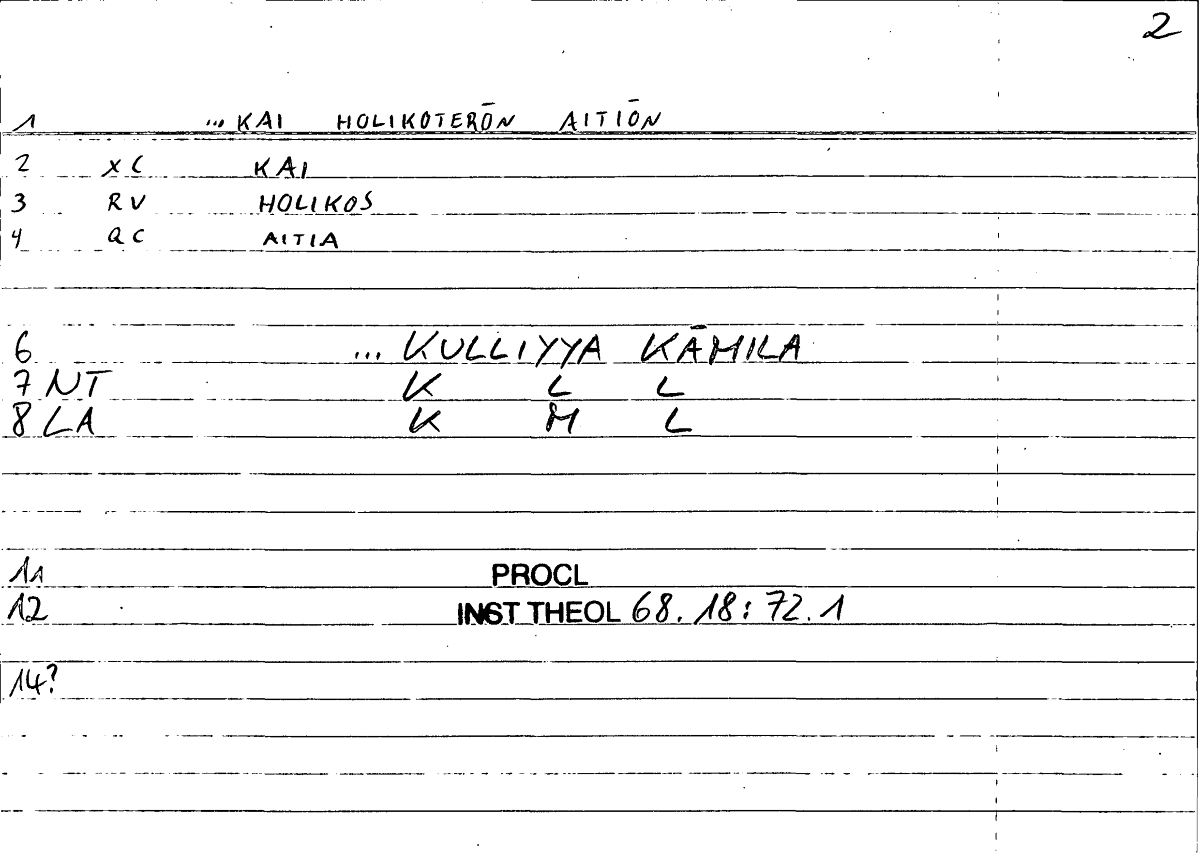 2
1 ... KAI HOLIKOTERŌN AITIŌN
2 XC KAI
3 RV HOLIKOS
4 QC AITIA
6 ... KULLIYYA KĀMILA
7 NT K L L
8 LA K M L
11 PROCL
12 INST THEOL 68. 18: 72. 1
14?